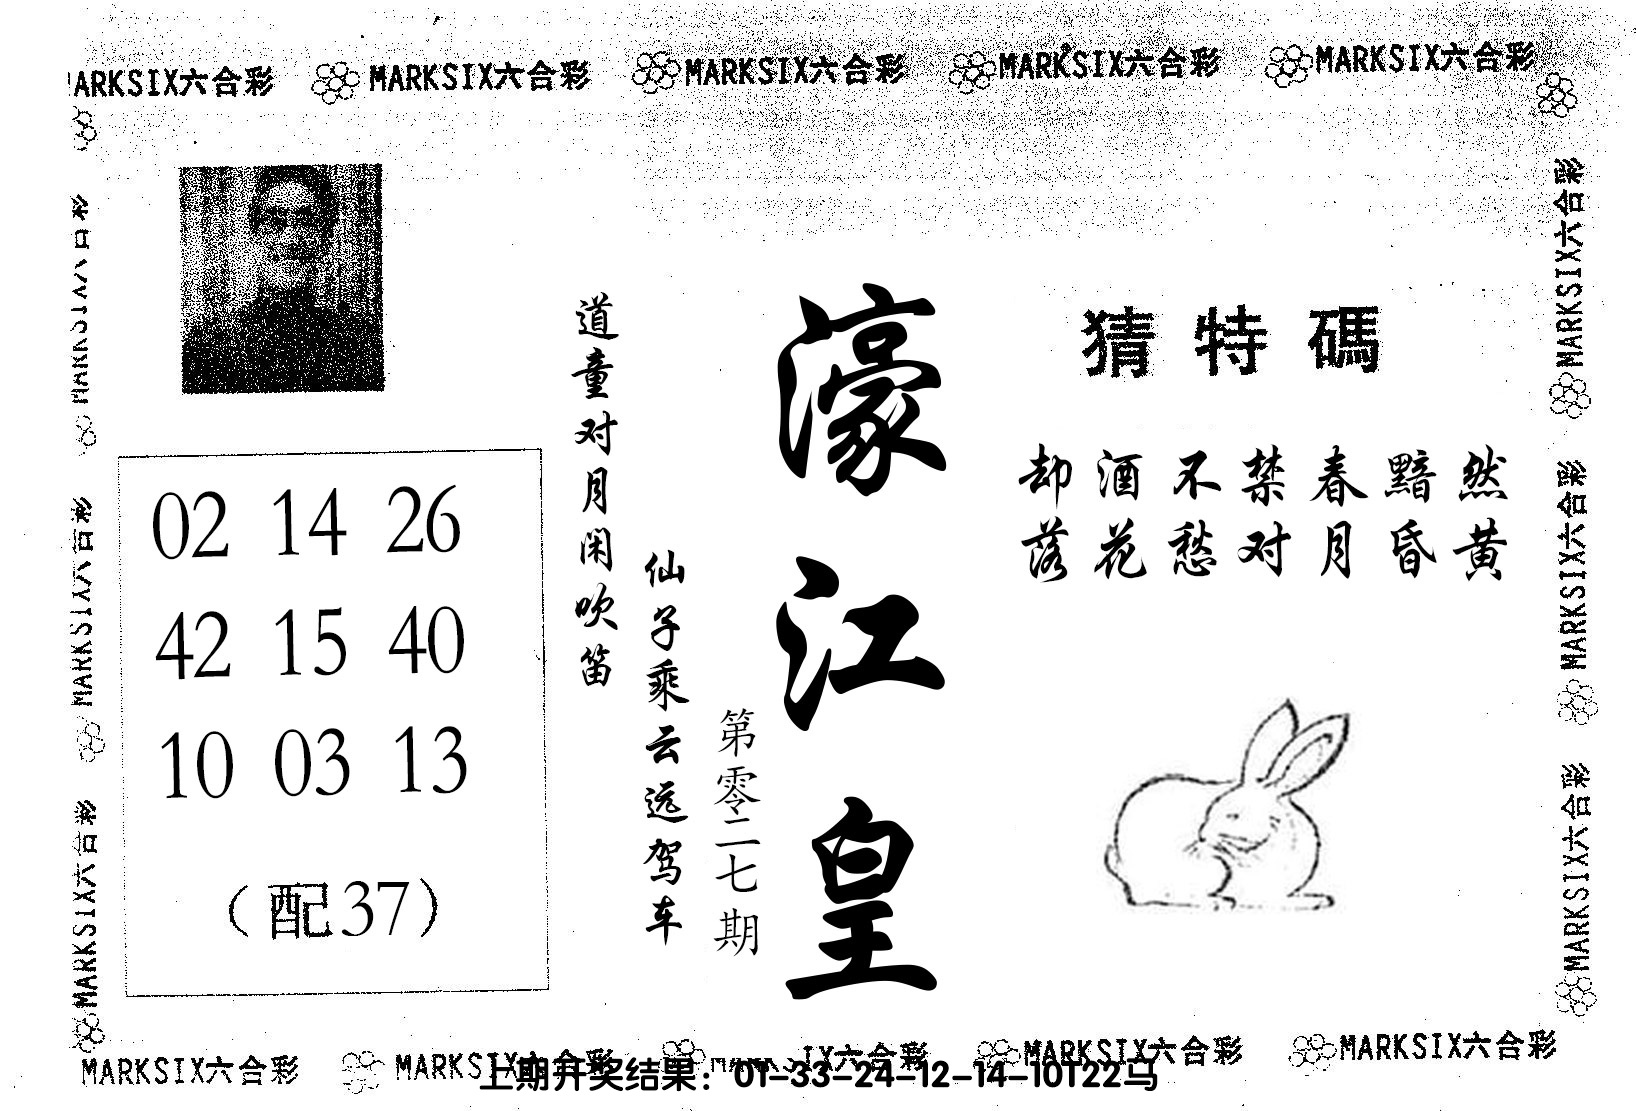 MARKSIX六合彩 MARKSIX六合彩 MARKSIX六合彩 MARKSIX六合彩 MARKSIX六合彩
MARKSIX六合彩
MARKSIX六合彩
MARKSIX六合彩
猜特碼
却酒不禁春黯然
落花愁对月昏黄
濠江皇
第零二七期
仙子乘云远驾车
道童对月闲吹笛
02 14 26
42 15 40
10 03 13
(配37)
MARKSIX六合彩
MARKSIX六合彩
MARKSIX六合彩
MARKSIX六合彩 MARKSIX六合彩 MARKSIX六合彩 MARKSIX六合彩 MARKSIX六合彩
上期开奖结果：01-33-24-12-14-10T22马